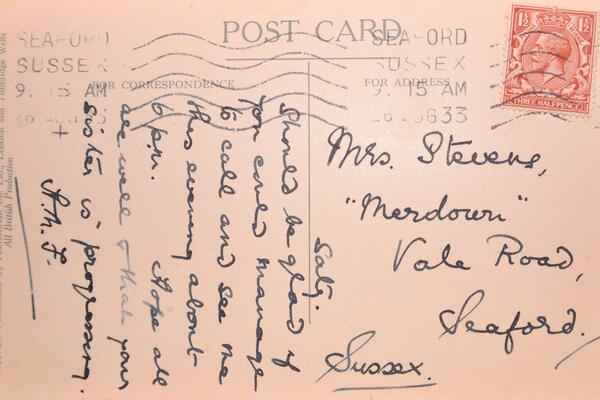 POST CARD
FOR CORRESPONDENCE
FOR ADDRESS
SEAFORD
SUSSEX
9. 15 AM
26 AUG 33
SEAFORD
SUSSEX
9. 15 AM
26 AUG 33
1½ 1½
THREE HALFPENCE
Saty.
Should be glad if
you could manage
to call and see me
this evening about
6 p.m. Hope all
are well & that your
sister is progressing.
A.M.F.
Mrs. Stevens,
"Merdown"
Vale Road,
Seaford.
Sussex.
Co. Ltd., London and Tunbridge Wells
All British Production